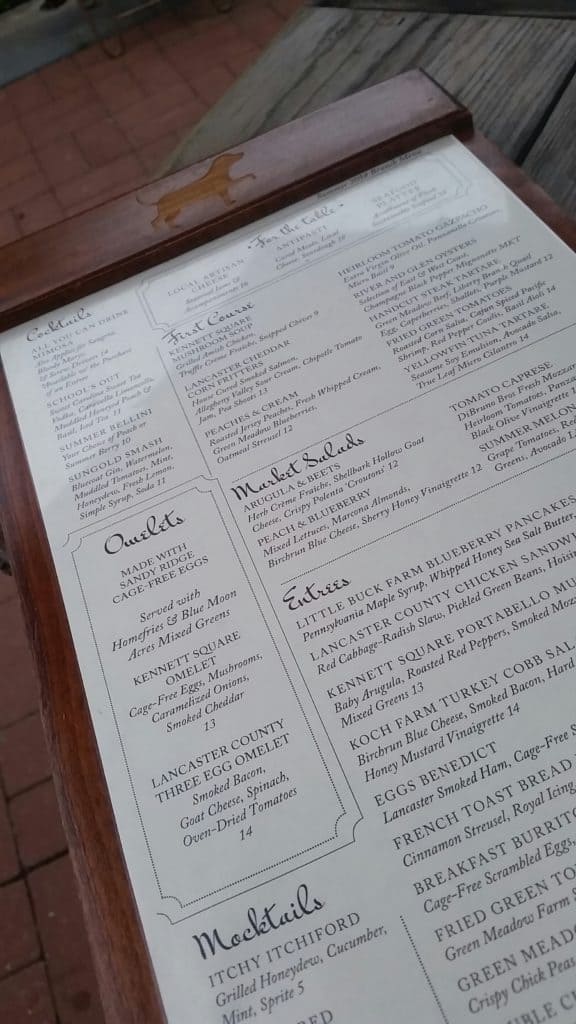 Summer 2014 Brunch Menu
For the table
LOCAL ARTISAN
CHEESE
Seasonal Jam &
Accompaniments 16
ANTIPASTI
Cured Meats, Local
Cheese, Sourdough 16
SEAFOOD
PLATTER
Cocktails
ALL YOU CAN DRINK
MIMOSA
Bloody Marys,
SCHOOL'S OUT
Sweet Carolina Sweet Tea
Vodka, Carpano Limoncello,
Muddled Honeyed Peach &
Basil, Iced Tea 11
SUMMER BELLINI
Your Choice of Peach or
Summer Berry 10
SUNGOLD SMASH
Bluecoat Gin, Watermelon,
Muddled Tomatoes, Mint,
Honeydew, Fresh Lemon,
Simple Syrup, Soda 11
First Course
KENNETT SQUARE
MUSHROOM SOUP
Grilled Amish Chicken,
Truffle Creme Fraiche, Snipped Chives 9
LANCASTER CHEDDAR
CORN FRITTERS
House Cured Smoked Salmon,
Allegheny Valley Sour Cream, Chipotle Tomato
Jam, Pea Shoots 13
PEACHES & CREAM
Roasted Jersey Peaches, Fresh Whipped Cream,
Green Meadow Blueberries,
Oatmeal Streusel 12
HEIRLOOM TOMATO GAZPACHO
Extra Virgin Olive Oil, Panzanella Croutons,
Micro Basil 9
RIVER AND GLEN OYSTERS
Selection of East & West Coast,
Champagne, Black Pepper Mignonette MKT
HANDCUT STEAK TARTARE
Green Meadow Beef, Liberty Bean & Quail
Egg, Caperberries, Shallots, Purple Mustard 12
FRIED GREEN TOMATOES
Roasted Corn Salsa, Cajun Spiced Pacific
Shrimp, Red Pepper Coulis, Basil Aioli 14
YELLOWFIN TUNA TARTARE
Sesame Soy Emulsion, Avocado Salsa,
True Leaf Micro Cilantro 14
Market Salads
ARUGULA & BEETS
Herb Crème Fraiche, Shellbark Hollow Goat
Cheese, Crispy Polenta 'Croutons' 12
PEACH & BLUEBERRY
Mixed Lettuces, Marcona Almonds,
Birchrun Blue Cheese, Sherry Honey Vinaigrette 12
TOMATO CAPRESE
DiBruno Bros Fresh Mozzar
Heirloom Tomatoes, Panza
Black Olive Vinaigrette 1
SUMMER MELON
Grape Tomatoes, Red
Greens, Avocado L
Omelets
MADE WITH
SANDY RIDGE
CAGE-FREE EGGS
Served with
Homefries & Blue Moon
Acres Mixed Greens
KENNETT SQUARE
OMELET
Cage-Free Eggs, Mushrooms,
Caramelized Onions,
Smoked Cheddar
13
LANCASTER COUNTY
THREE EGG OMELET
Smoked Bacon,
Goat Cheese, Spinach,
Oven-Dried Tomatoes
14
Entrees
LITTLE BUCK FARM BLUEBERRY PANCAKES
Pennsylvania Maple Syrup, Whipped Honey Sea Salt Butter,
LANCASTER COUNTY CHICKEN SANDWI
Red Cabbage-Radish Slaw, Pickled Green Beans, Hoisin
KENNETT SQUARE PORTABELLO MU
Baby Arugula, Roasted Red Peppers, Smoked Mozz
Mixed Greens 13
KOCH FARM TURKEY COBB SAL
Birchrun Blue Cheese, Smoked Bacon, Hard
Honey Mustard Vinaigrette 14
EGGS BENEDICT
Lancaster Smoked Ham, Cage-Free S
FRENCH TOAST BREAD
Cinnamon Streusel, Royal Icing
BREAKFAST BURRITO
Cage-Free Scrambled Eggs,
FRIED GREEN TO
Green Meadow Farm S
GREEN MEADO
Crispy Chick Peas
UBLE C
Mocktails
ITCHY ITCHIFORD
Grilled Honeydew, Cucumber,
Mint, Sprite 5
RED